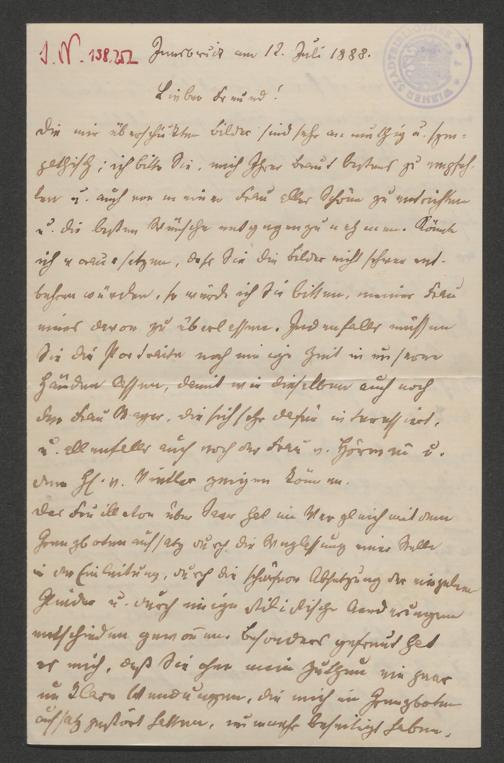 J. N. 138,252
WIENER STADTBIBLIOTHEK
Innsbruck am 12. Juli 1888.
Lieber Freund!
Die mir überschickten Bilder sind sehr anmuthig u. sym-
pathisch; ich bitte Sie, mich Ihrer Braut bestens zu empfeh-
len u. auch von meiner Frau alles Schöne zu entrichten
u. die besten Wünsche entgegenzunehmen. Könnte
ich voraussetzen, daß Sie die Bilder nicht schwer ent-
behren würden, so würde ich Sie bitten, meiner Frau
eines davon zu überlassen. Jedenfalls müssen
Sie die Portraite noch einige Zeit in unseren
Händen lassen, damit wir dieselben auch noch
der Frau Mayer, die sich sehr dafür interessiert,
u. allenfalls auch noch der Frau v. Hörmann u.
dem H. v. Vintler zeigen können.
Das Feuilleton über Saar hat im Vergleich mit dem
Grenzbotenaufsatz durch die Weglassung einer Stelle
in der Einleitung, durch die schärfere Absetzung der einzelnen
Glieder u. durch einige stilistische Aenderungen
entschieden gewonnen. Besonders gefreut hat
es mich, daß Sie ohne mein Zuthun ein paar
unklare Wendungen, die mich im Grenzboten-
aufsatz gestört hatten, nunmehr beseitigt haben.